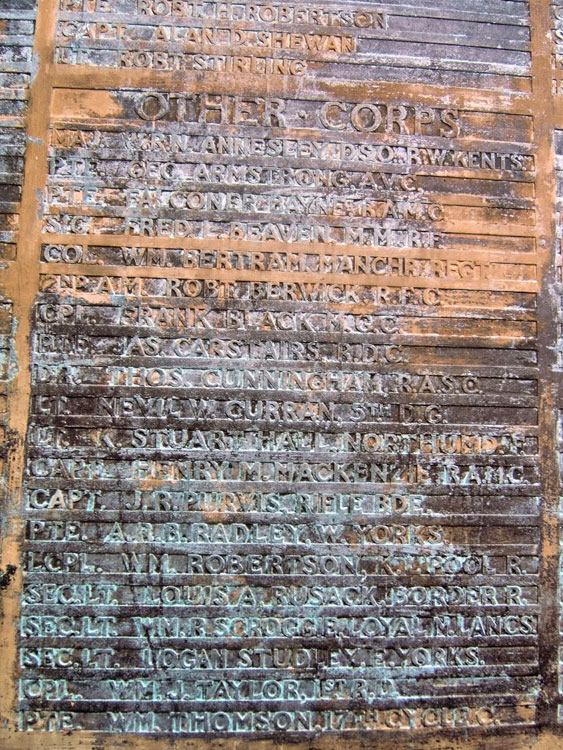 PTE. ROBT. H. ROBERTSON
CAPT. ALAN D. SHEWAN
LT. ROBT. STIRLING
OTHER · CORPS
MAJ. ANNESLEY, D.S.O., R.W. KENTS.
PTE. GEO. ARMSTRONG, A.V.C.
PTE. FALCONER BAYNE, R.A.M.C.
SGT. FRED L. BEAVEN, M.M., R.E.
COL. WM. BERTRAM, MANCHR. REGT.
2ND A.M. ROBT. BERWICK, R.F.C.
CPL. FRANK BLACK, M.G.C.
JAS. CARSTAIRS, R.D.C.
DR. THOS. CUNNINGHAM, R.A.S.C.
LT. NEVIL W. CURRAN, 5TH D.G.
LT. K. STUART HALL, NORTHUMD. F.
CAPT. HENRY M. MACKENZIE, R.A.M.C.
CAPT. J.R. PURVIS, RIFLE BDE.
PTE. A.R.B. RADLEY, W. YORKS.
L.CPL. WM. ROBERTSON, K. L'POOL R.
SEC. LT. LOUIS A. RUSACK, BORDER R.
SEC. LT. WM. R. SCROGGIE, LOYAL N. LANCS
SEC. LT. LOGAN STUDLEY, E. YORKS.
CPL. WM. J. TAYLOR,
PTE. WM. THOMSON, 17TH CYCL. C.